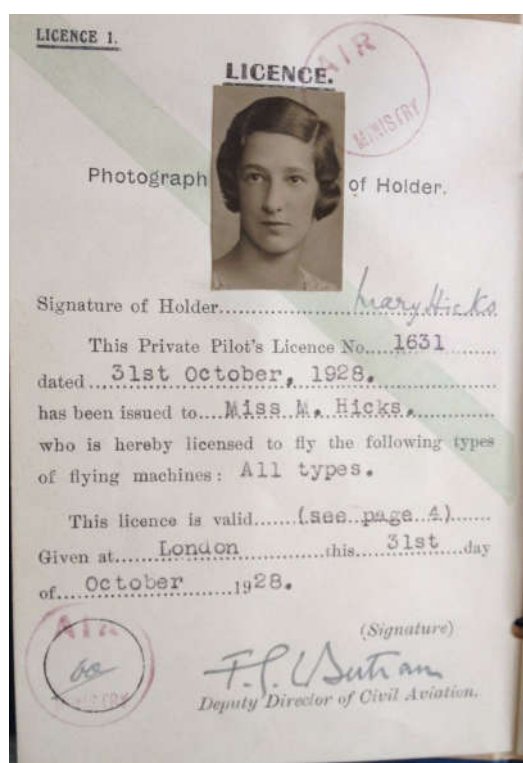 LICENCE 1.
LICENCE.
AIR
MINISTRY
Photograph of Holder.
Signature of Holder..................Mary Hicks
This Private Pilot's Licence No....1631.......
dated...31st October, 1928.................
has been issued to....Miss M. Hicks,............
who is hereby licensed to fly the following types
of flying machines: All types.
This licence is valid......(see page 4)......
Given at......London...............this.....31st....day
of....October.......1928.
AIR
MINISTRY
(Signature)
Deputy Director of Civil Aviation.